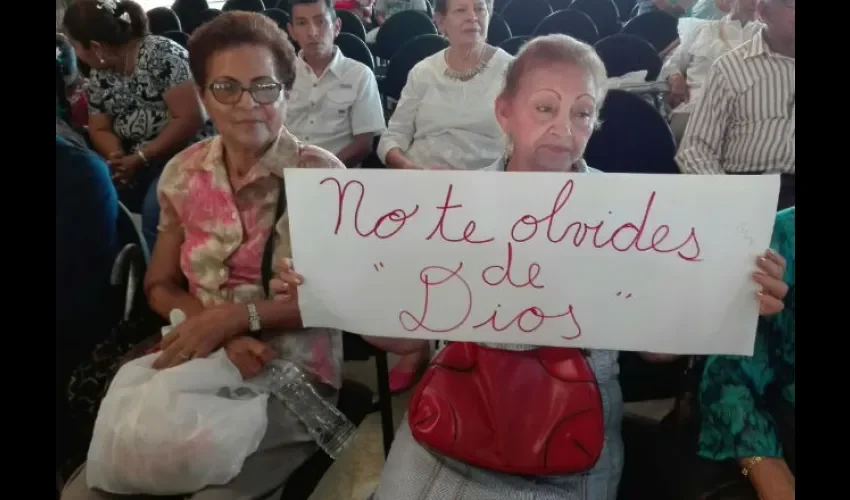 No te olvides
de
"Dios"